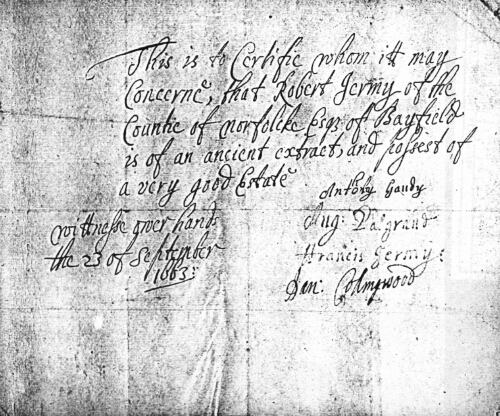 This is to Certifie whom itt may
Concerne, that Robert Jermy of the
Countie of norfolcke Esqr of Bayfield
is of an ancient extract, and possest of
a very good Estate
Anthony Gaudy
Aug: Palgraue
wittnesse our hands
the 23 of September
1663:
Francis Jermy: